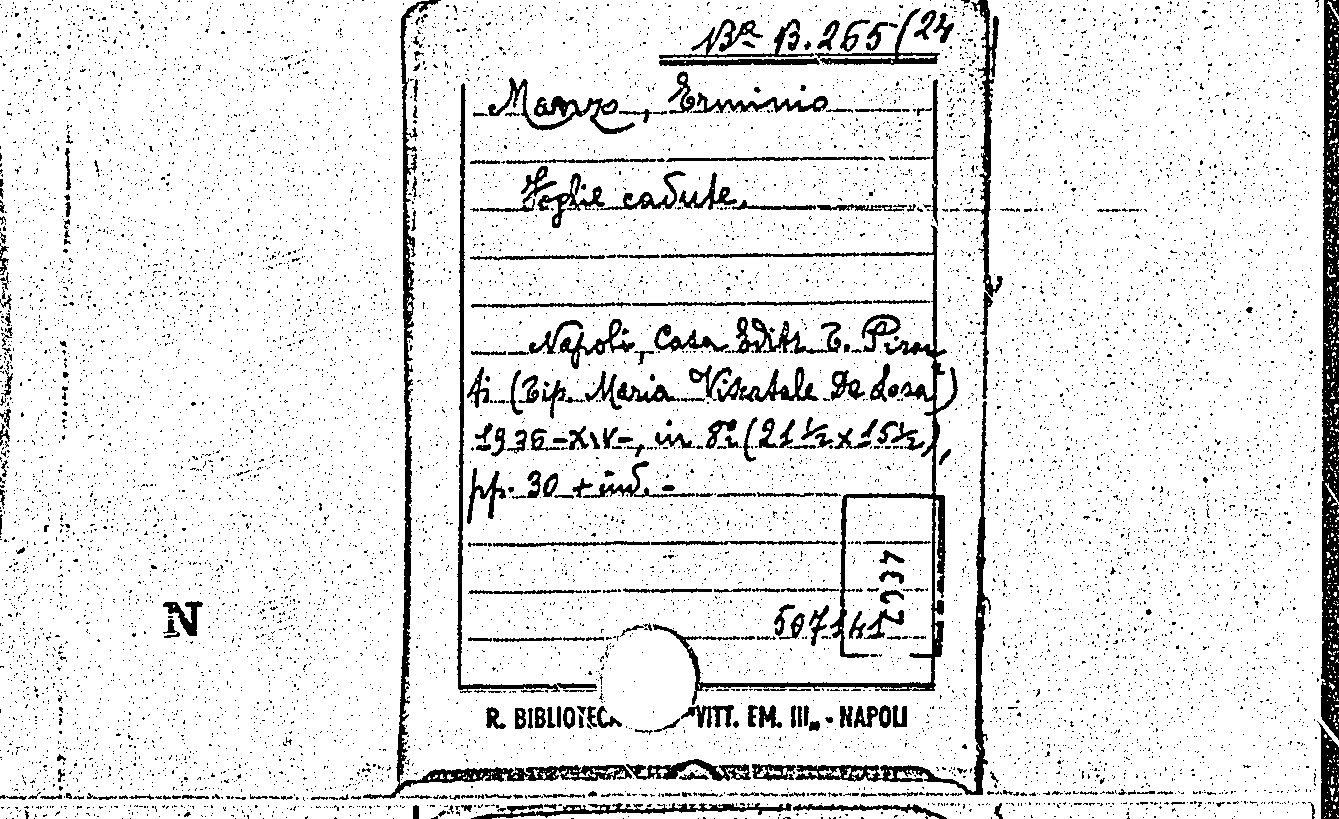 Bª B. 265/24
Manzo, Erminio
Foglie cadute.
Napoli, Casa Editr. T. Piron
ti (Tip. Maria Viscatale De Losa)
1936-XIV-, in 8º (21 ½ x 15 ½),
pp. 30 + ind. -
507141
N
R. BIBLIOTECA "VITT. EM. III„ - NAPOLI